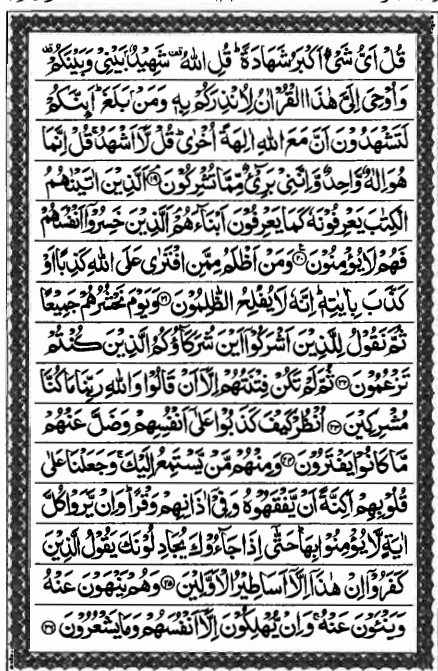 قُلْ اَىُّ شَىْءٍ اَكْبَرُ شَهَادَةً ؕ قُلِ اللّٰهُ ۙ شَهِيْدٌۢ بَيْنِىْ وَبَيْنَكُمْ ۟
وَاُوْحِىَ اِلَىَّ هٰذَا الْقُرْاٰنُ لِاُنْذِرَكُمْ بِهٖ وَمَنْۢ بَلَغَ ؕ اَئِنَّكُمْ
لَتَشْهَدُوْنَ اَنَّ مَعَ اللّٰهِ اٰلِهَةً اُخْرٰى ؕ قُلْ لَّاۤ اَشْهَدُ ۚ قُلْ اِنَّمَا
هُوَ اِلٰهٌ وَّاحِدٌ وَّاِنَّنِىْ بَرِىْٓءٌ مِّمَّا تُشْرِكُوْنَ ۘ‏﴿۱۹﴾ اَلَّذِيْنَ اٰتَيْنٰهُمُ
الْكِتٰبَ يَعْرِفُوْنَهٗ كَمَا يَعْرِفُوْنَ اَبْنَآءَهُمْ ۘ اَلَّذِيْنَ خَسِرُوْۤا اَنْفُسَهُمْ
فَهُمْ لَا يُؤْمِنُوْنَ ﴿۲۰﴾ وَمَنْ اَظْلَمُ مِمَّنِ افْتَرٰى عَلَى اللّٰهِ كَذِبًا اَوْ
كَذَّبَ بِاٰيٰتِهٖ ؕ اِنَّهٗ لَا يُفْلِحُ الظّٰلِمُوْنَ ﴿۲۱﴾ وَيَوْمَ نَحْشُرُهُمْ جَمِيْعًا
ثُمَّ نَقُوْلُ لِلَّذِيْنَ اَشْرَكُوْۤا اَيْنَ شُرَكَآؤُكُمُ الَّذِيْنَ كُنْتُمْ
تَزْعُمُوْنَ ﴿۲۲﴾ ثُمَّ لَمْ تَكُنْ فِتْنَتُهُمْ اِلَّاۤ اَنْ قَالُوْا وَاللّٰهِ رَبِّنَا مَا كُنَّا
مُشْرِكِيْنَ ﴿۲۳﴾ اُنْظُرْ كَيْفَ كَذَبُوْا عَلٰٓى اَنْفُسِهِمْ وَضَلَّ عَنْهُمْ
مَّا كَانُوْا يَفْتَرُوْنَ ﴿۲۴﴾ وَمِنْهُمْ مَّنْ يَّسْتَمِعُ اِلَيْكَ ۚ وَجَعَلْنَا عَلٰى
قُلُوْبِهِمْ اَكِنَّةً اَنْ يَّفْقَهُوْهُ وَفِىْۤ اٰذَانِهِمْ وَقْرًا ؕ وَاِنْ يَّرَوْا كُلَّ
اٰيَةٍ لَّا يُؤْمِنُوْا بِهَا ؕ حَتّٰۤى اِذَا جَآءُوْكَ يُجَادِلُوْنَكَ يَقُوْلُ الَّذِيْنَ
كَفَرُوْۤا اِنْ هٰذَاۤ اِلَّاۤ اَسَاطِيْرُ الْاَوَّلِيْنَ ﴿۲۵﴾ وَهُمْ يَنْهَوْنَ عَنْهُ
وَيَنْئَوْنَ عَنْهُ ۚ وَاِنْ يُّهْلِكُوْنَ اِلَّاۤ اَنْفُسَهُمْ وَمَا يَشْعُرُوْنَ ﴿۲۶﴾